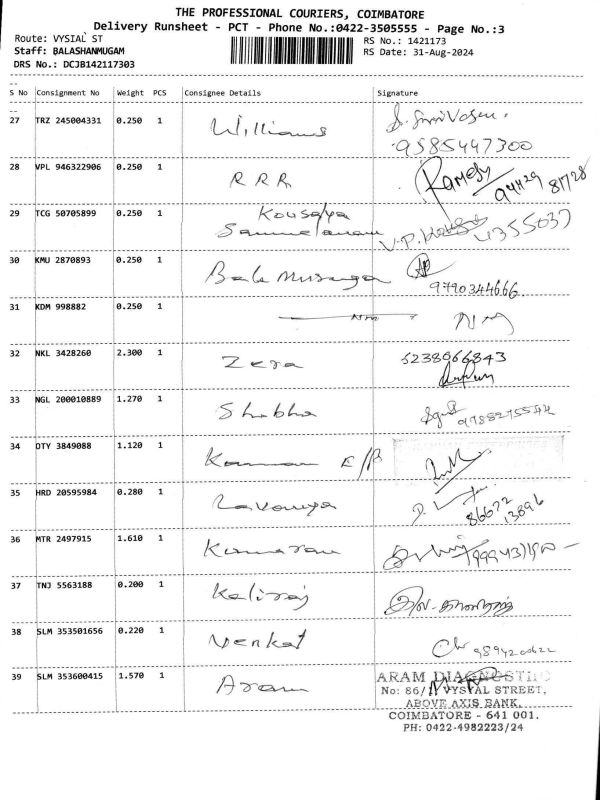 THE PROFESSIONAL COURIERS, COIMBATORE
Delivery Runsheet - PCT - Phone No.:0422-3505555 - Page No.:3
Route: VYSIAL ST
RS No.: 1421173
Staff: BALASHANMUGAM
RS Date: 31-Aug-2024
DRS No.: DCJB142117303
S No Consignment No Weight PCS Consignee Details Signature
27 TRZ 245004331 0.250 1 Williams
9585447300
28 VPL 946322906 0.250 1 R R R Ramesh
94429 81728
29 TCG 50705899 0.250 1 Kousalya
4355037
30 KMU 2870893 0.250 1 Bala Muruga
9790344666
31 KDM 998882 0.250 1
32 NKL 3428260 2.300 1 Zera
33 NGL 200010889 1.270 1 Shobha
34 DTY 3849088 1.120 1
35 HRD 20595984 0.280 1 Lavanya
86672
13896
36 MTR 2497915 1.610 1 Kumaran
37 TNJ 5563188 0.200 1 Kaliraj
38 SLM 353501656 0.220 1 Venkat
39 SLM 353600415 1.570 1 Aram
ARAM DIAGNOSTIC
VYSYAL STREET,
ABOVE AXIS BANK,
COIMBATORE - 641 001.
PH: 0422-4982223/24